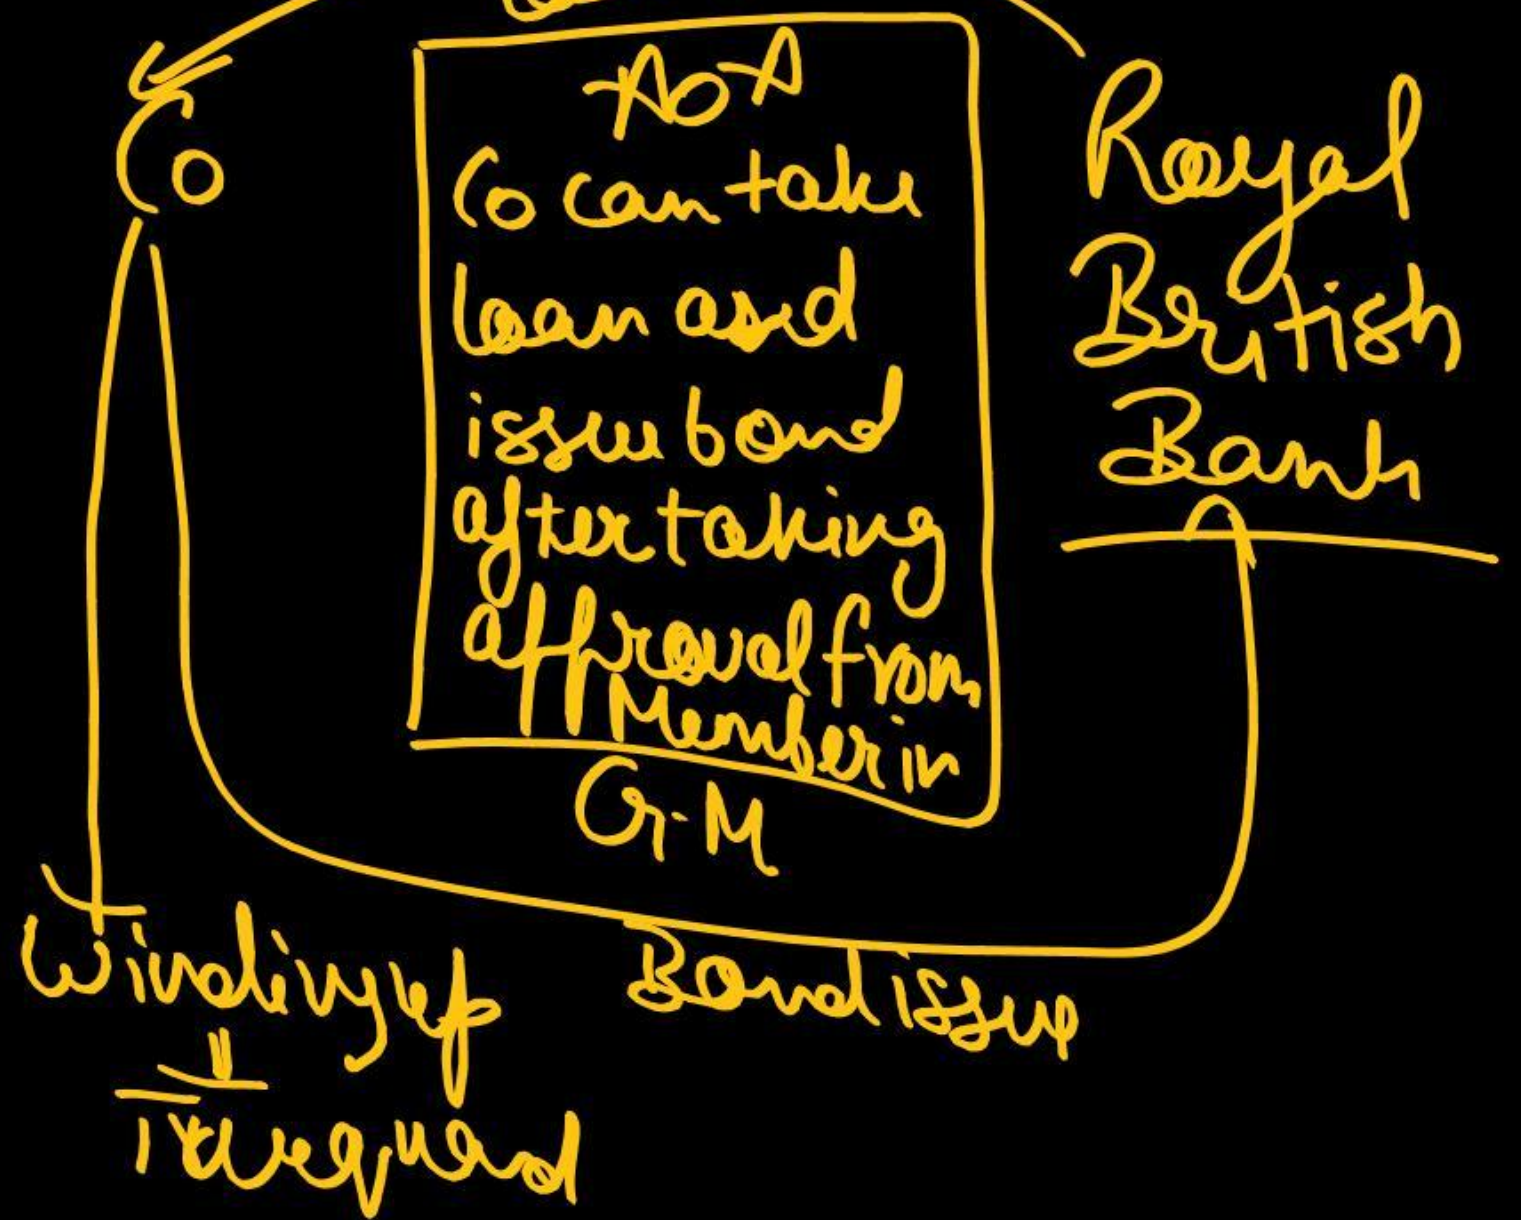 AOA
Co can take
loan and
issue bond
after taking
approval from
Member in
G.M
Co
Royal
British
Bank
Winding up
Bond issue